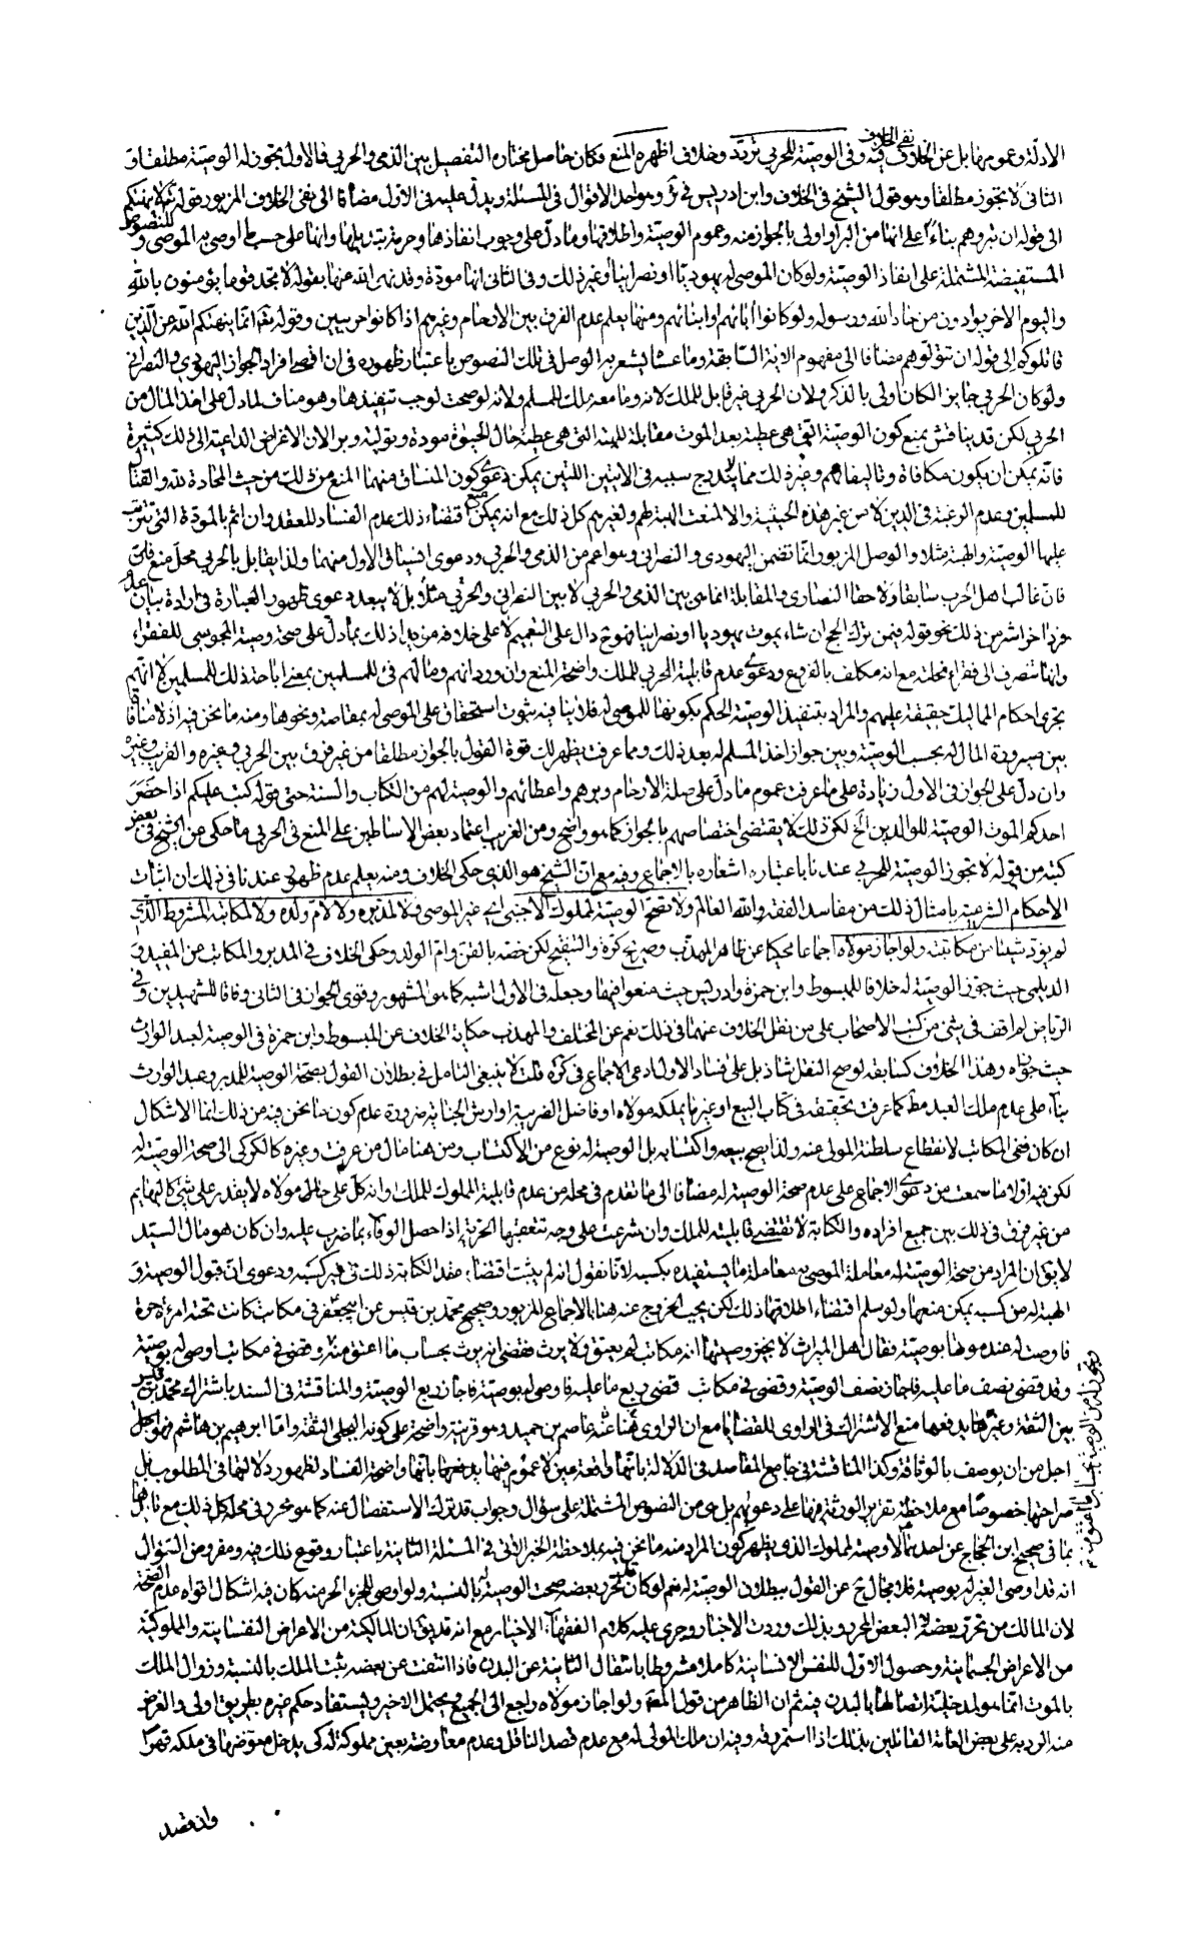 الادلة وعمومها بل عن الخلاف نفي الخلاف فيه وفي الوصية للحربي تردد وخلاف اظهره المنع فكان حاصل مختاره التفصيل بين الذمي والحربي فالاول تجوز له الوصية مطلقا و
الثاني لا تجوز مطلقا وهو قول الشيخ في الخلاف وابن ادريس في ئر وهو احد الاقوال في المسئلة ويدل عليه في الاول مضافا الى نفي الخلاف المزبور قوله تع لا ينهيكم
الى قوله ان تبروهم بناءً على انها من البر او اولى بالجواز منه وعموم الوصية واطلاقها وما دل على وجوب انفاذها وحرمة تبديلها وانها على حسب ما اوصى به الموصي و للنصوص
المستفيضة المشتملة على انفاذ الوصية ولو كان الموصى له يهوديا او نصرانيا وغير ذلك وفي الثاني انها موادة وقد نهى الله عنها بقوله لا تجد قوما يؤمنون بالله
واليوم الاخر يوادون من حاد الله ورسوله ولو كانوا آبائهم او ابنائهم ومنها يعلم عدم الفرق بين الارحام وغيرهم اذا كانوا حربيين وقوله تعم انما ينهيكم الله عن الذين
قاتلوكم الى قوله ان تولوهم مضافا الى مفهوم الاية السابقة وما عساه يشعر به الوصل في تلك النصوص باعتبار ظهوره في ان اخفى افراد الجواز اليهودي والنصراني
ولو كان الحربي جايزا لكان اولى بالذكر ولان الحربي غير قابل للملك لانه وما معه ملك للمسلم ولانه لو صحت لوجب تنفيذها وهو مناف لما دل على اخذ المال من
الحربي لكن قد يناقش بمنع كون الوصية التي هي عطية بعد الموت مقابلة للهبة التي هي عطية حال الحيوة مودة وتولية وبرا لان الاغراض الداعية الى ذلك كثيرة
فانه يمكن ان يكون مكافاة وتاليفا لهم وغير ذلك مما لا يندرج سببه في الايتين اللتين يمكن دعوى كون المنساق منهما المنع من ذلك من حيث المحادة لله والقتال
للمسلمين وعدم الرغبة في الدين لا من غير هذه الحيثية والا لمنعت الهبة لهم ولغيرهم كل ذلك مع انه يمكن منع اقتضاء ذلك عدم الفساد للعقد وان اثم بالموادة التي تترتب
عليها الوصية والهبة مثلا والوصل المزبور انما تضمن اليهودي والنصراني وهو اعم من الذمي والحربي ودعوى انسياق الاول منهما ولذا يقابل بالحربي محل منع
فان غالب اهل الحرب سابقا ولاحقا النصارى والمقابلة انما هي بين الذمي والحربي لا بين النصراني والحربي مثلا بل لا يبعد دعوى ظهور العبارة في ارادة بيان
فرد اخر اشر من ذلك نحو قوله فيمن ترك الحج ان شاء يموت يهوديا او نصرانيا فهو ح دال على التعميم لا على خلافه مزيدا لذلك مما دل على صحة وصية المجوسي للفقراء
وانها تنصرف الى فقراء نحلته مع انه مكلف بالفروع ودعوى عدم قابلية الحربي للملك واضحة المنع وان ورد انهم وما لهم فئ للمسلمين بمعنى اباحة ذلك للمسلمين لا انهم
تجرى احكام المماليك حقيقة عليهم والمراد بتنفيذ الوصية الحكم بكونها للموصى له فلا ينافيه ثبوت استحقاق على الموصى له بمقاصة ونحوها ومنه ما نحن فيه اذ لا منافاة
بين صيرورة المال له بحسب الوصية وبين جواز اخذ المسلم له بعد ذلك ومما عرفت يظهر لك قوة القول بالجواز مطلقا من غير فرق بين الحربي وغيره والقريب وغيره
وان دل على الجواز في الاول زيادة على ما عرفت عموم ما دل على صلة الارحام وبرهم واعطائهم والوصية لهم من الكتاب والسنة حتى قوله كتب عليكم اذا حضر
احدكم الموت الوصية للوالدين الخ لكن ذلك لا يقتضي اختصاصهم بالجواز كما هو واضح ومن الغريب اعتماد بعض الاساطين على المنع في الحربي ما حكي عن الشيخ في بعض
كتبه من قوله لا تجوز الوصية للحربي عندنا باعتبار اشعاره بالاجماع وفيه مع ان الشيخ هو الذي حكى الخلاف ومنه يعلم عدم ظهور عندنا في ذلك ان اثبات
الاحكام الشرعية بامثال ذلك من مفاسد الفقه والله العالم ولا تصح الوصية لمملوك الاجنبي اي غير الموصي ولا لمدبره ولا لام ولده ولا لمكاتبه المشروط الذي
لم يؤد شيئا من مكاتبته ولو اجاز مولاه اجماعا محكيا عن ظاهر المهذب وصريح كرة والتنقيح لكن خصه بالقن وام الولد وحكى الخلاف في المدبر والمكاتب عن المفيد و
الديلمي حيث جوز الوصية له خلافا للمبسوط وابن حمزة وادريس حيث منعوا فيها وجعله في الاول اشبه كما هو المشهور وقوى الجواز في الثاني وفاقا للشهيدين وفي
الرياض لم اقف في شئ من كتب الاصحاب على من نقل الخلاف عنهما في ذلك نعم عن المختلف والمهذب حكاية الخلاف عن المبسوط وابن حمزة في الوصية لعبد الوارث
حيث جوزاه وهذا الخلاف كسابقه لو صح النقل شاذ بل على فساد الاول ادعى الاجماع في كرة قلت لا ينبغي التامل في بطلان القول بصحة الوصية للمدبر وعبد الوارث
بناء على عدم ملك العبد مط كما عرفت تحقيقه في كتاب البيع او غير ما يملكه مولاه او فاضل الضريبة او ارش الجناية ضرورة عدم كون ما نحن فيه من ذلك انما الاشكال
ان كان ففي المكاتب لانقطاع سلطنة المولى عنه ولذا يصح بيعه واكتسابه بل الوصية له نوع من الاكتساب ومن هنا مال من عرفت وغيره كالكركي الى صحة الوصية له
لكن فيه اولا ما سمعت من دعوى الاجماع على عدم صحة الوصية له مضافا الى ما تقدم في محله من عدم قابلية المملوك للملك وانه كل على مولاه لا يقدر على شئ
من غير فرق في ذلك بين جميع افراده والكتابة لا تقتضي قابليته للملك وان شرعت على وجه تتعقبها الحرية اذا حصل الوفاء بما ضرب عليه وان كان هو مال السيد
لا يق ان المراد من صحة الوصية له معاملة الموصى به معاملة ما يستفيده بكسبه لانا نقول انه لم يثبت اقتضاء عقد الكتابة ذلك في غير كسبه ودعوى ان قبول الوصية و
الهبة له من كسبه يمكن منعها ولو سلم اقتضاء اطلاقها ذلك لكن يجب الخروج عنه هنا بالاجماع المزبور وصحيح محمد بن قيس عن ابيجعفر في مكاتب كانت تحته امرءة حرة
فاوصت له عند موتها بوصية فقال اهل الميراث لا يجوز وصيتها انه مكاتب لم يعتق ولا يرث فقضى انه يرث بحساب ما اعتق منه وقضى في مكاتب اوصى له بوصية
وقد قضى نصف ما عليه فاجاز نصف الوصية وقضى في مكاتب قضى ربع ما عليه فاوصى له بوصية فاجاز ربع الوصية والمناقشة في السند باشتراك محمد بن قيس
بين الثقة وغيره يدفعها منع الاشتراك في الراوي للقضايا مع ان الراوي هنا عنه عاصم بن حميد وهو قرينة واضحة على كونه البجلي الثقة واما ابرهيم بن هاشم فهو اجل
اجل من ان يوصف بالوثاقة وكذا المناقشة في جامع المقاصد في الدلالة بانها واقعة عين لا عموم فيها يدفعها بانها واضحة الفساد لظهور دلالتها في المطلوب بل
صراحتها خصوصا مع ملاحظة تقرير الورثة فيها على دعواهم بل هي من النصوص المشتملة على سؤال وجواب قد ترك الاستفصال عنه كما هو محرر في محله كل ذلك مع تايدها
بما في صحيح ابن الحجاج عن احدهما لا وصية لمملوك الذي يظهر كون المراد منه ما نحن فيه بملاحظة الخبر الاتي في المسئلة الثانية باعتبار وقوع ذلك فيه ومفروض السؤال
انه قد اوصى الغير له بوصية فلا مجال ح عن القول ببطلان الوصية له نعم لو كان قد تحرر بعضه صحت الوصية له بالنسبة ولو اوصى للجزء الحر منه كان فيه اشكال اقواه عدم الصحة
لان المالك من تحرر بعضه لا البعض المحرر وبذلك وردت الاخبار وجرى عليه كلام الفقهاء الاخيار مع انه قد يق ان المالكية من الاعراض النفسانية والمملوكية
من الاعراض الجسمانية وحصول الاول للنفس الانسانية كاملا مشروط بانتقال الثانية عن البدن فاذا انتفت عن بعضه يثبت الملك بالنسبة وزوال الملك
بالموت انما هو لمدخلية اتصالها بالبدن فيه ثم ان الظاهر من قول المصنف ولو اجاز مولاه راجع الى الجميع ويحتمل الاخير ويستفاد حكم غيره بطريق اولى والغرض
منه الرد به على بعض العامة القائلين بذلك اذا استمر رقه وفيه ان ملك المولى له مع عدم قصد الناقل وعدم معاوضة بعين مملوكة له كى يدخل معوضها في ملكه قهرا
وان قصد
ويجوز له من الوصية بحساب ما اعتق منه